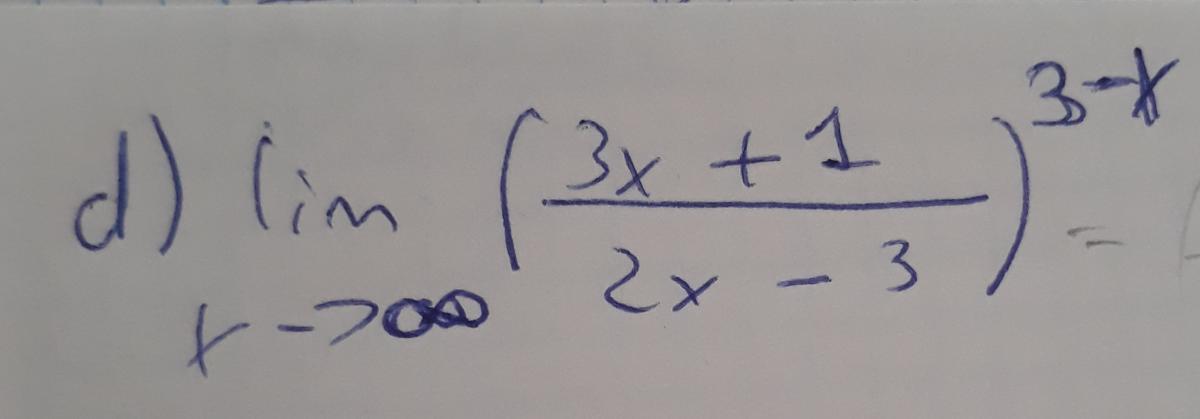 d) lim (3x + 1 / 2x - 3)^3-x =
x->∞